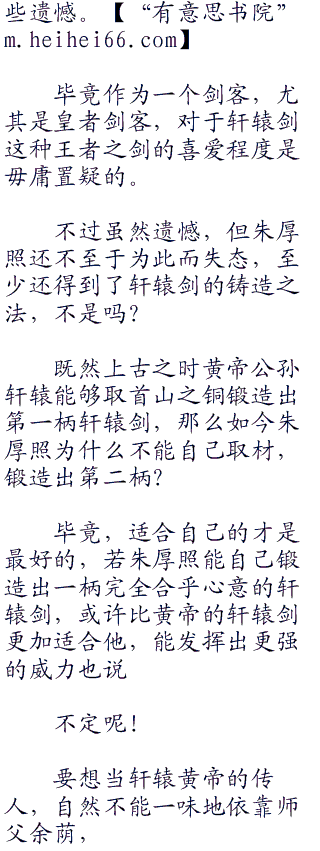 些遗憾。【“有意思书院”
m.heihei66.com】
毕竟作为一个剑客，尤
其是皇者剑客，对于轩辕剑
这种王者之剑的喜爱程度是
毋庸置疑的。
不过虽然遗憾，但朱厚
照还不至于为此而失态，至
少还得到了轩辕剑的铸造之
法，不是吗？
既然上古之时黄帝公孙
轩辕能够取首山之铜锻造出
第一柄轩辕剑，那么如今朱
厚照为什么不能自己取材，
锻造出第二柄？
毕竟，适合自己的才是
最好的，若朱厚照能自己锻
造出一柄完全合乎心意的轩
辕剑，或许比黄帝的轩辕剑
更加适合他，能发挥出更强
的威力也说
不定呢！
要想当轩辕黄帝的传
人，自然不能一味地依靠师
父余荫，